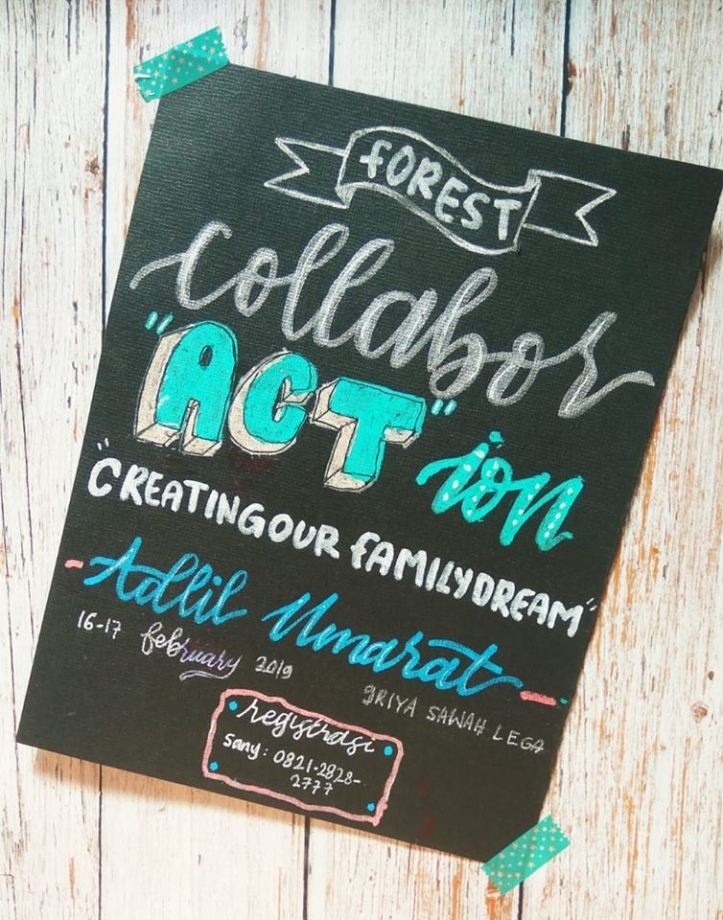 FOREST
collabor
"ACT"ion
"CREATING OUR FAMILY DREAM"
- Adhil Umarat -
16-17 february 2019
GRIYA SAWAH LEGA
registrasi
Sany: 0821-2828-
2777